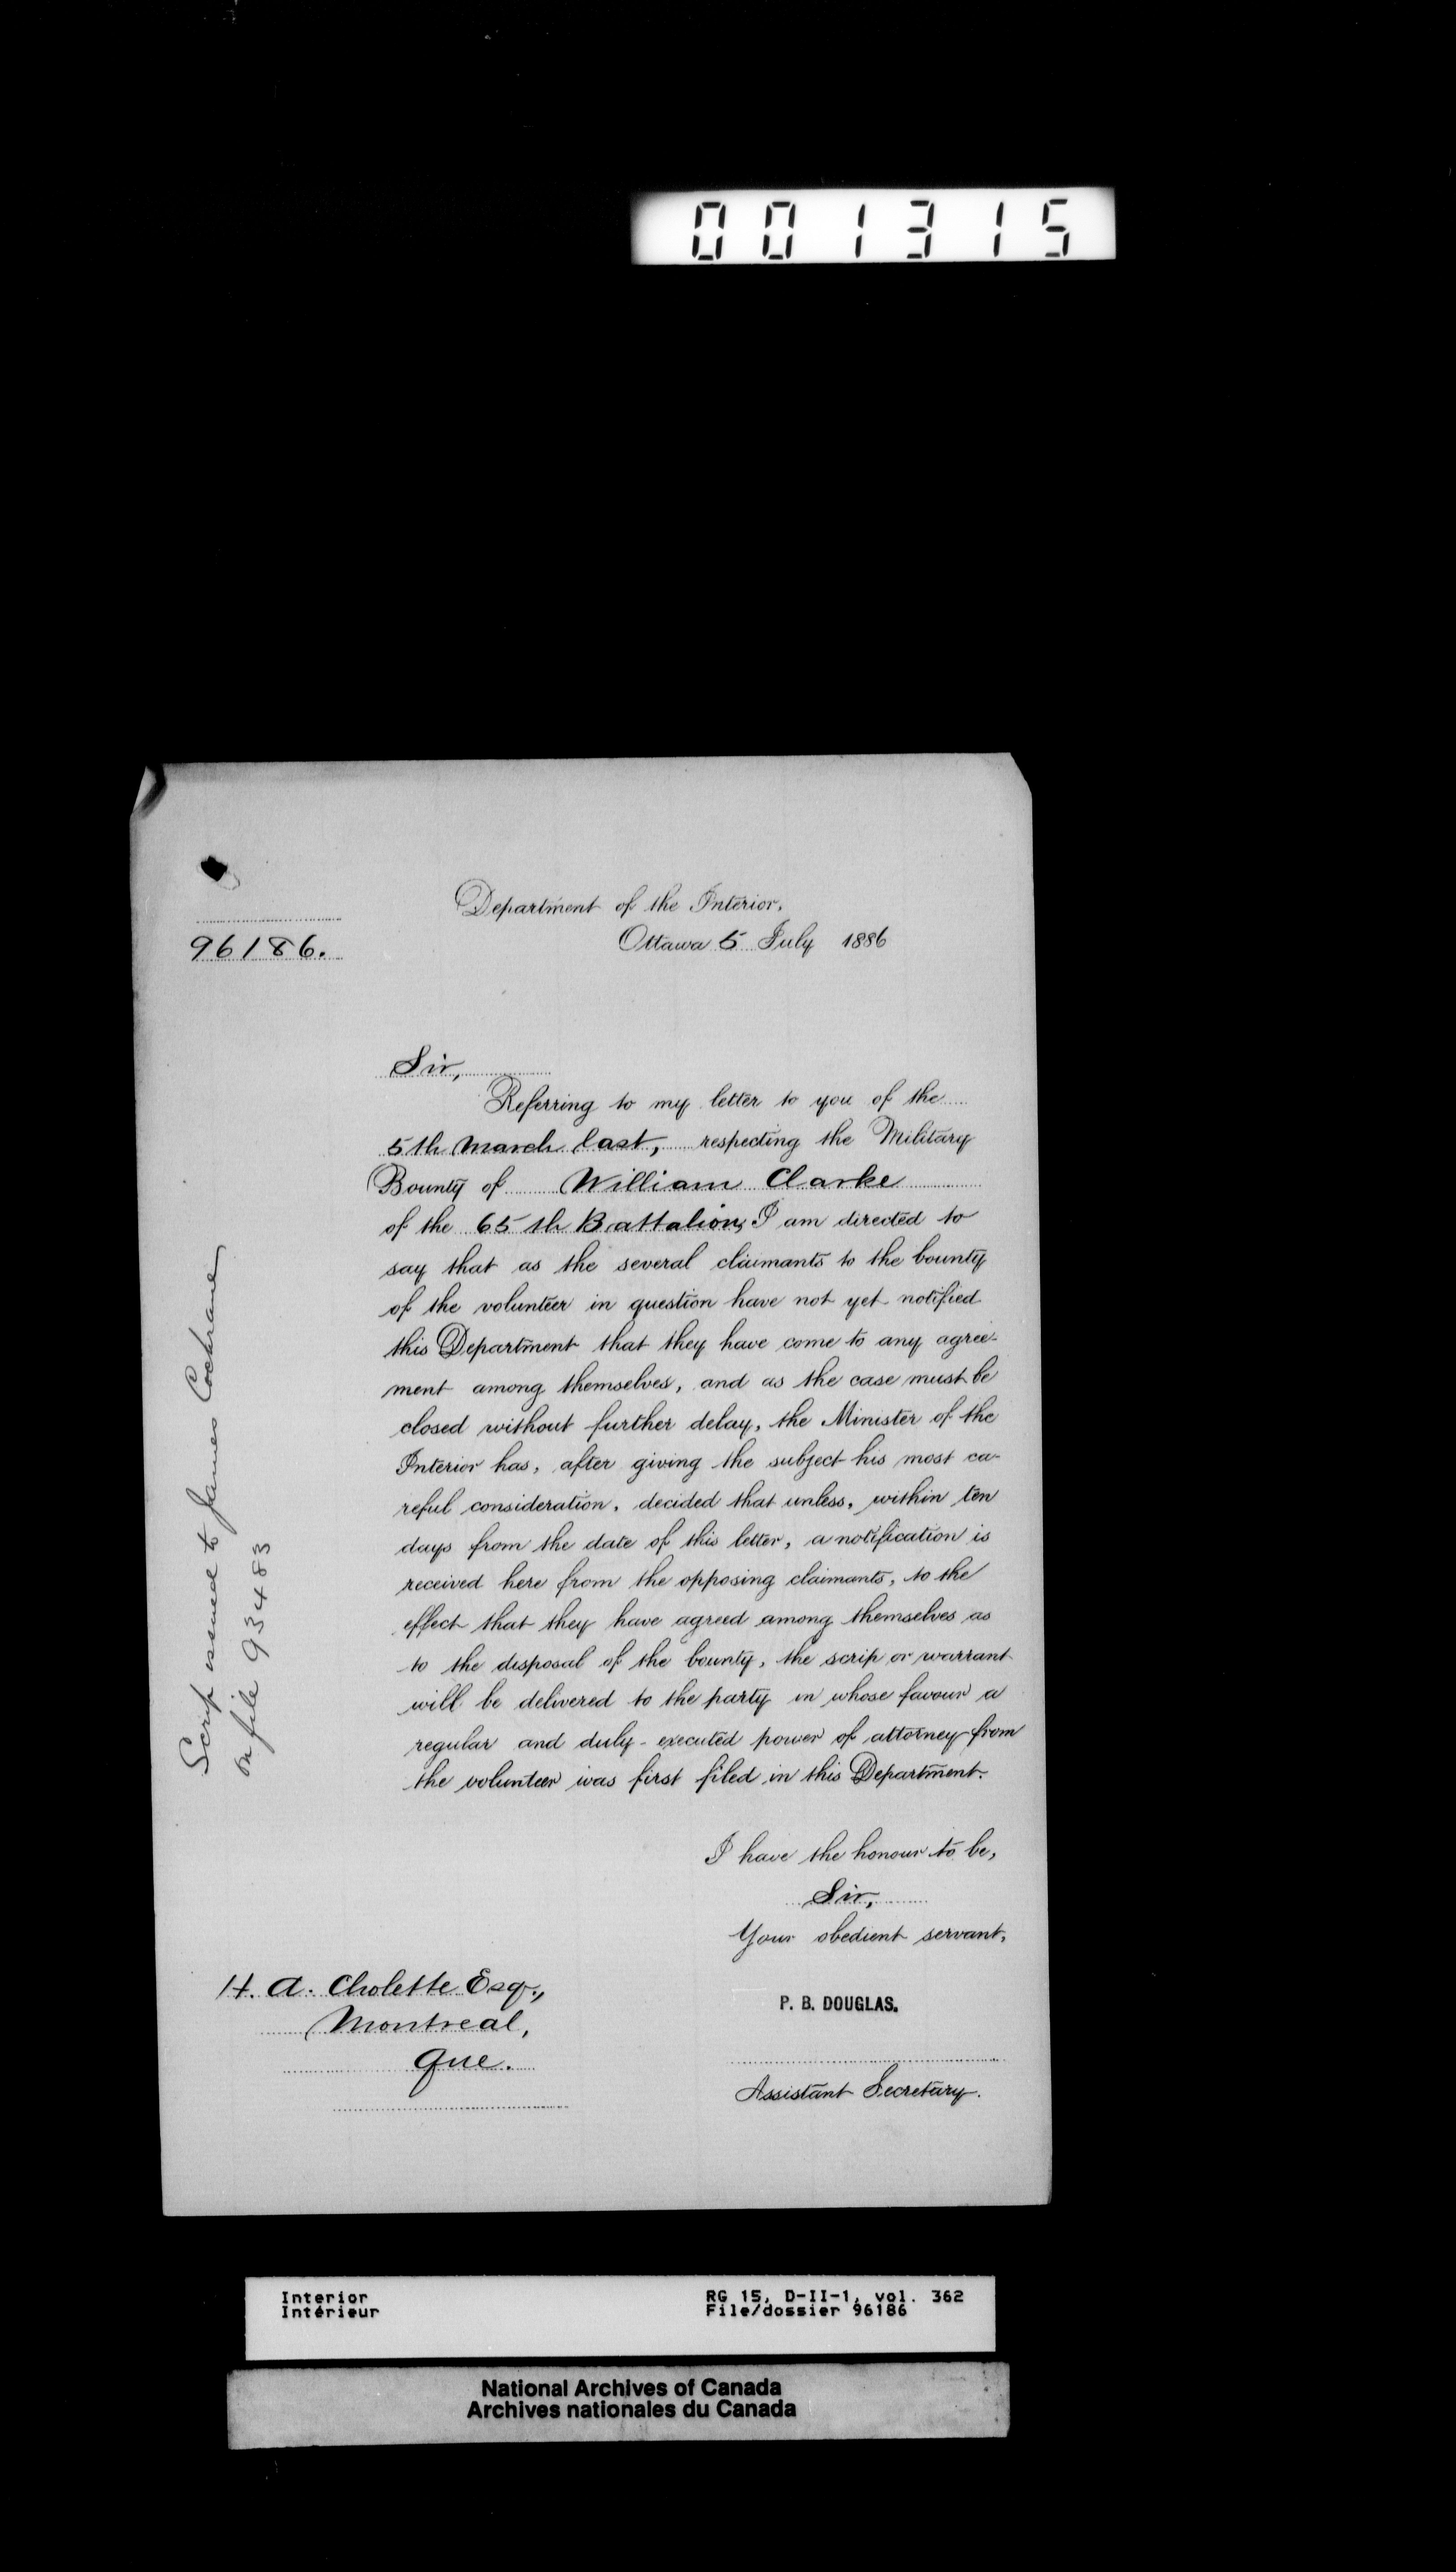 001315
Department of the Interior,
96186.
Ottawa 5 July 1886
Sir,
Referring to my letter to you of the
5th March last, respecting the Military
Bounty of William Clarke
of the 65th Battalion, I am directed to
say that as the several claimants to the bounty
of the volunteer in question have not yet notified
this Department that they have come to any agree-
ment among themselves, and as the case must be
closed without further delay, the Minister of the
Interior has, after giving the subject his most ca-
reful consideration, decided that unless, within ten
days from the date of this letter, a notification is
received here from the opposing claimants, to the
effect that they have agreed among themselves as
to the disposal of the bounty, the scrip or warrant
will be delivered to the party in whose favour a
regular and duly-executed power of attorney from
the volunteer was first filed in this Department.
I have the honour to be,
Sir,
Your obedient servant,
P. B. DOUGLAS.
Assistant Secretary.
H. A. Cholette Esq.,
Montreal,
Que.
Scrip issued to James Cochrane
on file 93483
Interior
Intérieur
RG 15, D-II-1, vol. 362
File/dossier 96186
National Archives of Canada
Archives nationales du Canada